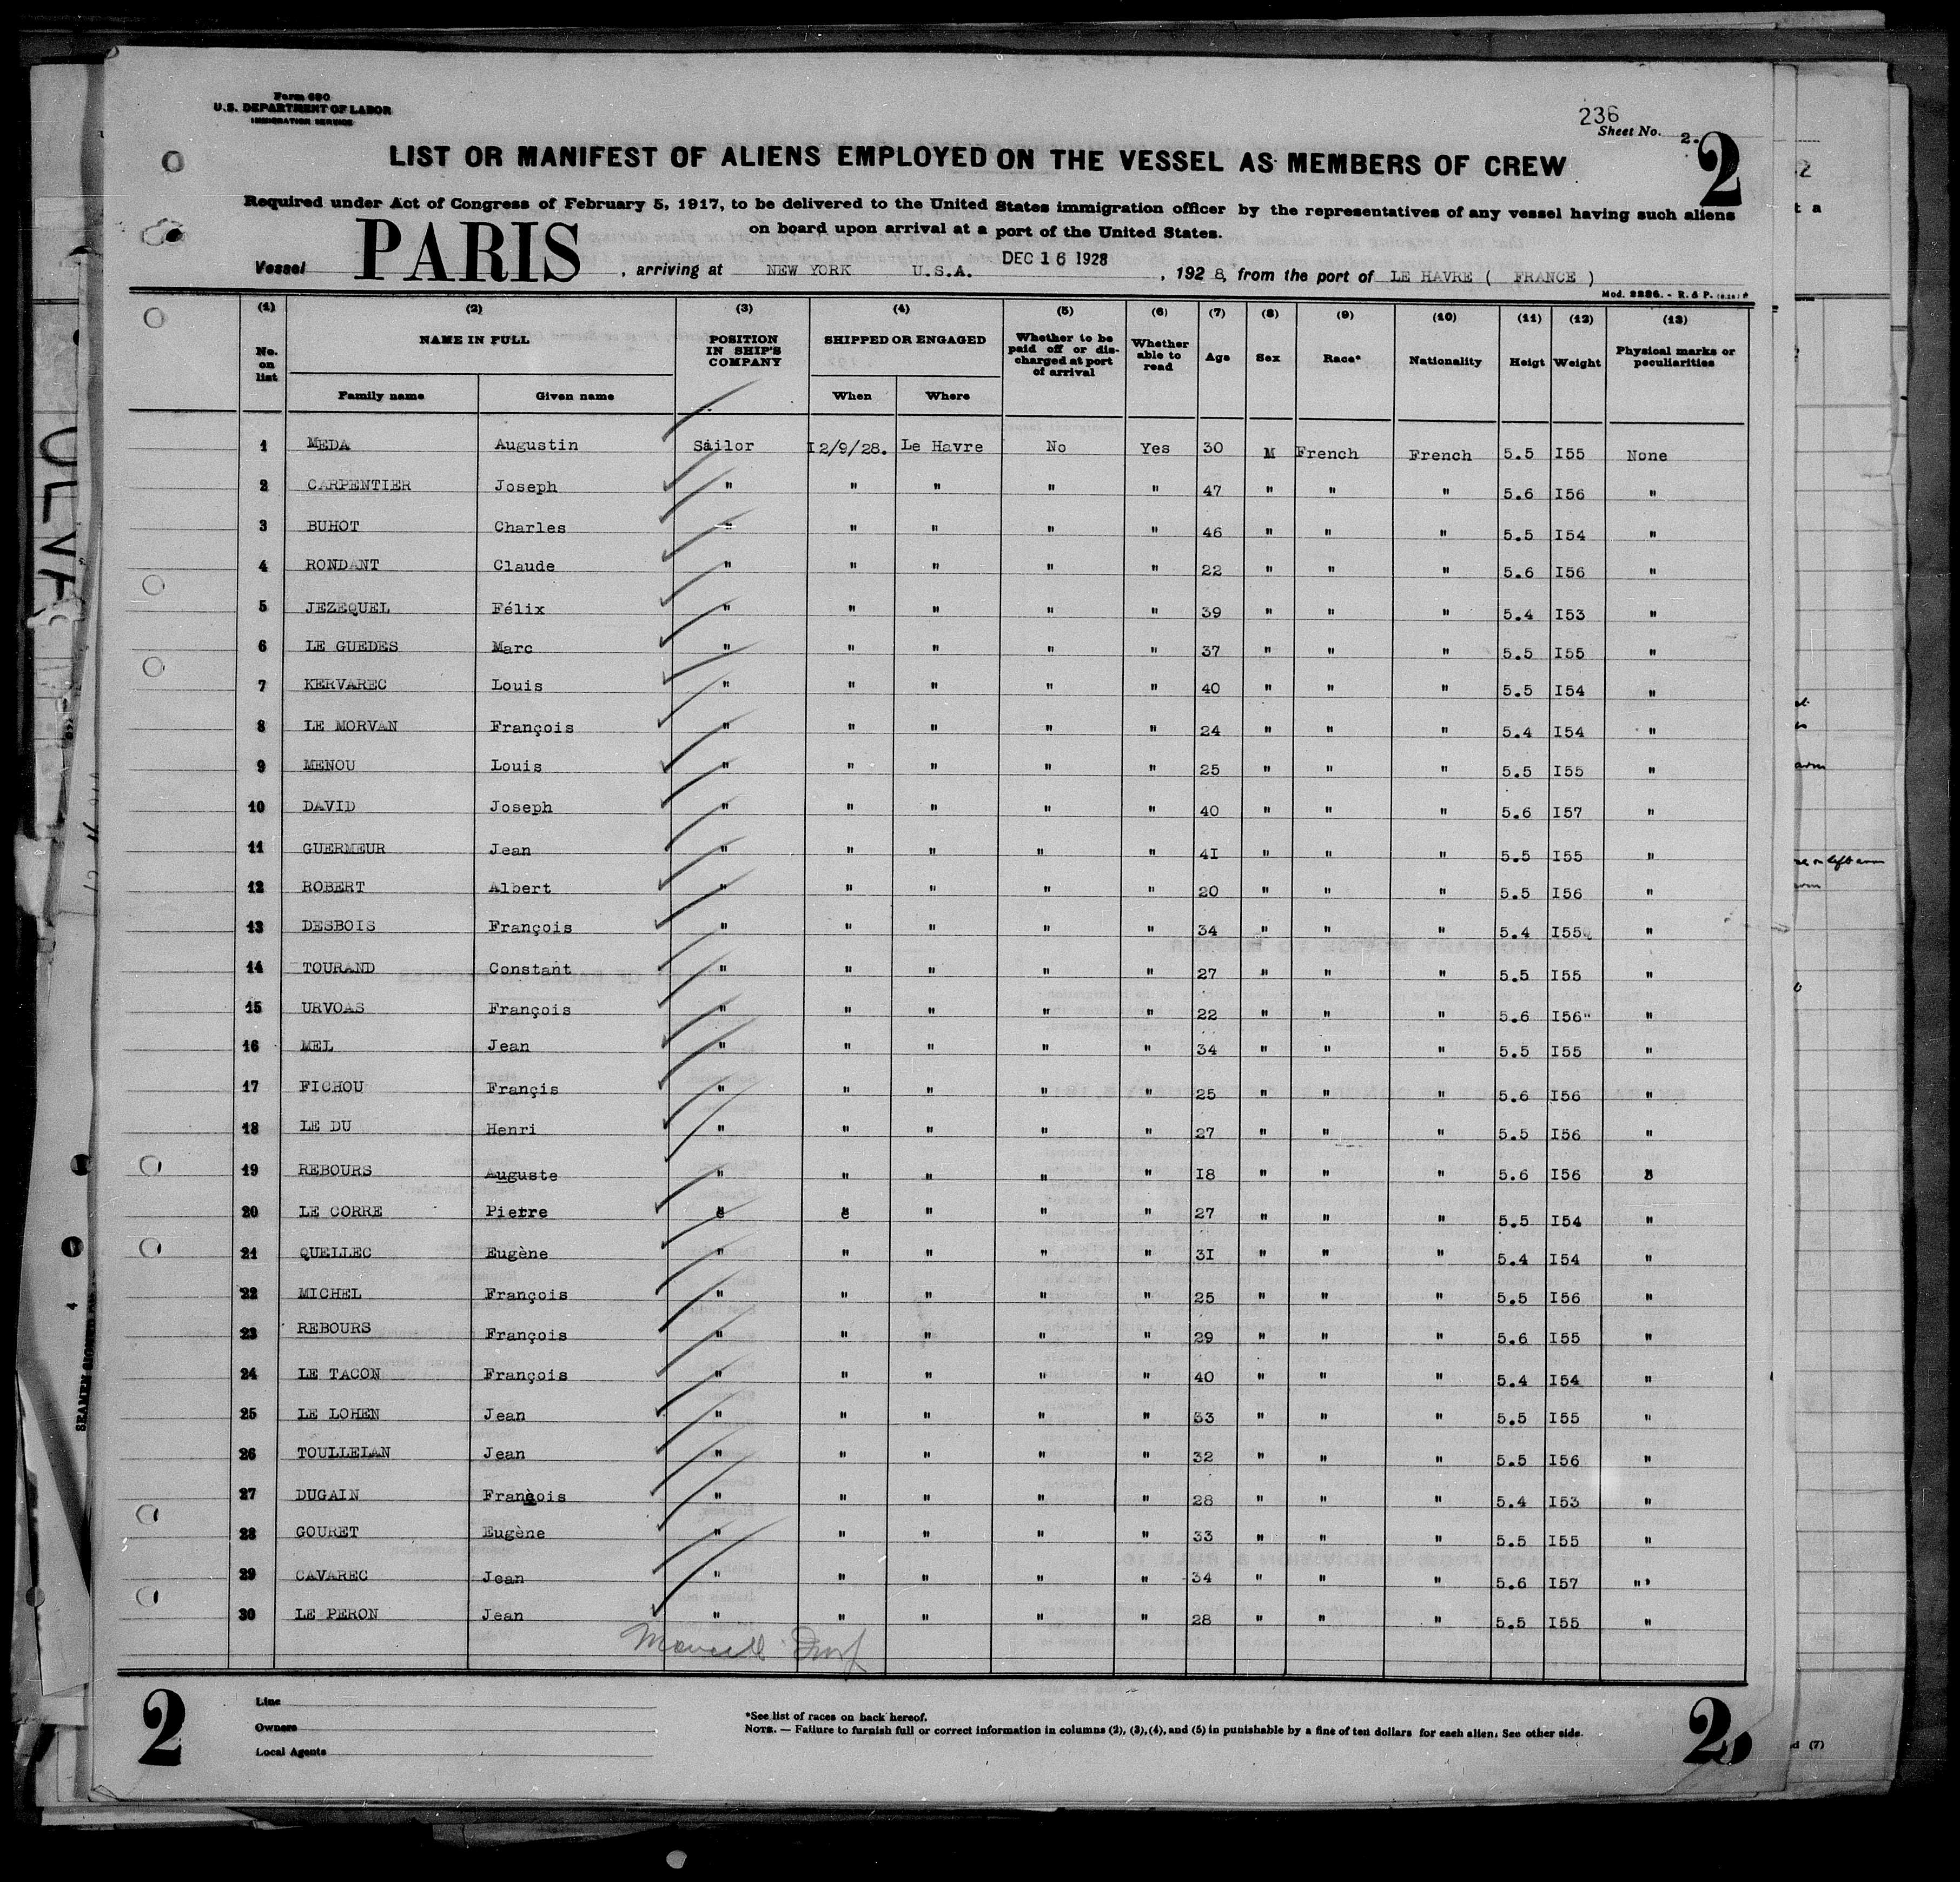 Form 680
U.S. DEPARTMENT OF LABOR
IMMIGRATION SERVICE
236
Sheet No. 2.
2
LIST OR MANIFEST OF ALIENS EMPLOYED ON THE VESSEL AS MEMBERS OF CREW
Required under Act of Congress of February 5, 1917, to be delivered to the United States immigration officer by the representatives of any vessel having such aliens
on board upon arrival at a port of the United States.
Vessel PARIS, arriving at NEW YORK U.S.A. DEC 16 1928, 1928, from the port of LE HAVRE ( FRANCE )
Mod. 2286. - R. & P.
(1) (2) (3) (4) (5) (6) (7) (8) (9) (10) (11) (12) (13)
No. on list NAME IN FULL Family name Given name POSITION IN SHIP'S COMPANY SHIPPED OR ENGAGED When Where Whether to be paid off or discharged at port of arrival Whether able to read Age Sex Race* Nationality Heigt Weight Physical marks or peculiarities
1 MEDA Augustin Sailor I2/9/28. Le Havre No Yes 30 M French French 5.5 I55 None
2 CARPENTIER Joseph " " " " " 47 " " " 5.6 I56 "
3 BUHOT Charles " " " " " 46 " " " 5.5 I54 "
4 RONDANT Claude " " " " " 22 " " " 5.6 I56 "
5 JEZEQUEL Félix " " " " " 39 " " " 5.4 I53 "
6 LE GUEDES Marc " " " " " 37 " " " 5.5 I55 "
7 KERVAREC Louis " " " " " 40 " " " 5.5 I54 "
8 LE MORVAN François " " " " " 24 " " " 5.4 I54 "
9 MENOU Louis " " " " " 25 " " " 5.5 I55 "
10 DAVID Joseph " " " " " 40 " " " 5.6 I57 "
11 GUERMEUR Jean " " " " " 4I " " " 5.5 I55 "
12 ROBERT Albert " " " " " 20 " " " 5.5 I56 "
13 DESBOIS François " " " " " 34 " " " 5.4 I55 "
14 TOURAND Constant " " " " " 27 " " " 5.5 I55 "
15 URVOAS François " " " " " 22 " " " 5.6 I56" "
16 MEL Jean " " " " " 34 " " " 5.5 I55 "
17 FICHOU Françis " " " " " 25 " " " 5.6 I56 "
18 LE DU Henri " " " " " 27 " " " 5.5 I56 "
19 REBOURS Auguste " " " " " I8 " " " 5.6 I56 "
20 LE CORRE Pierre " " " " " 27 " " " 5.5 I54 "
21 QUELLEC Eugène " " " " " 3I " " " 5.4 I54 "
22 MICHEL François " " " " " 25 " " " 5.5 I56 "
23 REBOURS François " " " " " 29 " " " 5.6 I55 "
24 LE TACON François " " " " " 40 " " " 5.4 I54 "
25 LE LOHEN Jean " " " " " 33 " " " 5.5 I55 "
26 TOULLELAN Jean " " " " " 32 " " " 5.5 I56 "
27 DUGAIN François " " " " " 28 " " " 5.4 I53 "
28 GOURET Eugène " " " " " 33 " " " 5.5 I55 "
29 CAVAREC Jean " " " " " 34 " " " 5.6 I57 "
30 LE PERON Jean " " " " " 28 " " " 5.5 I55 "
2
Line
Owners
Local Agents
*See list of races on back hereof.
NOTE. — Failure to furnish full or correct information in columns (2), (3), (4), and (5) in punishable by a fine of ten dollars for each alien. See other side.
2